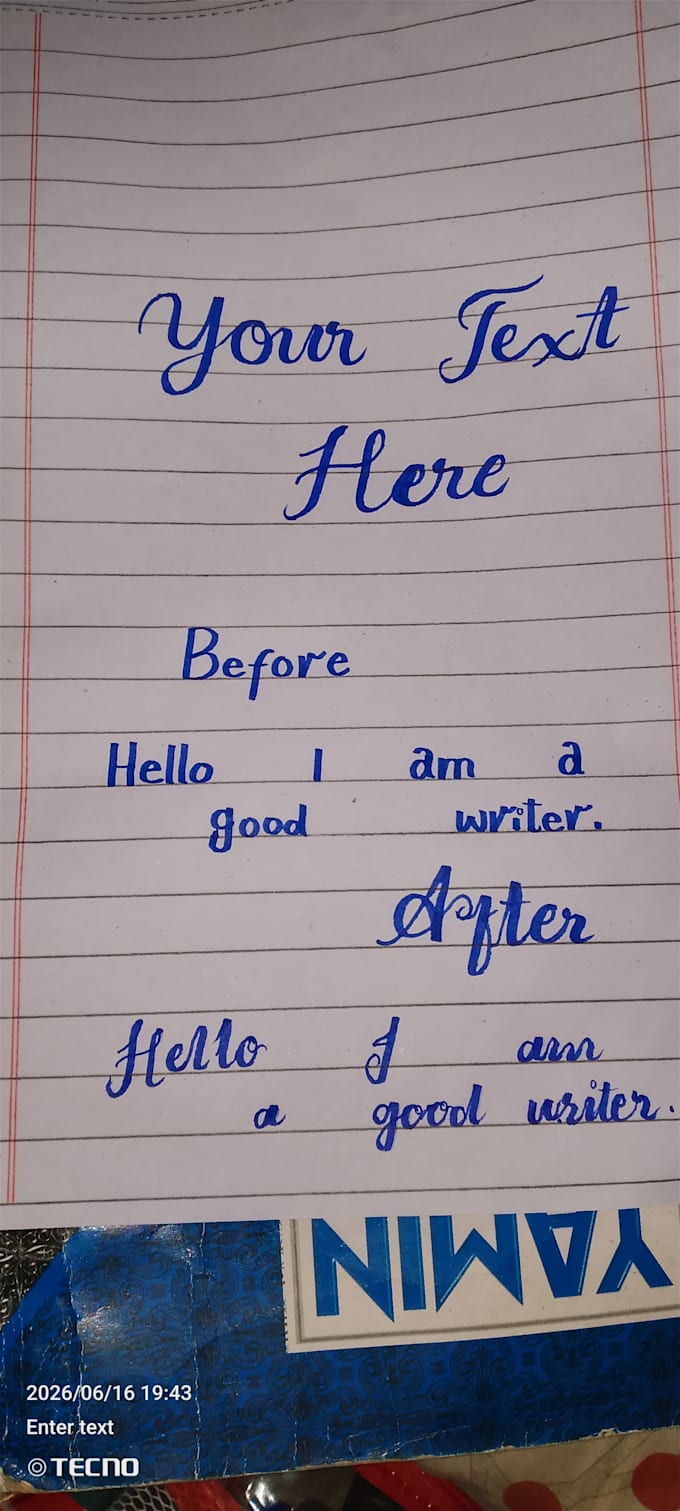 Your Text
Here
Before
Hello I am a
good writer.
After
Hello I am
a good writer.
YAMIN
2026/06/16 19:43
Enter text
TECNO